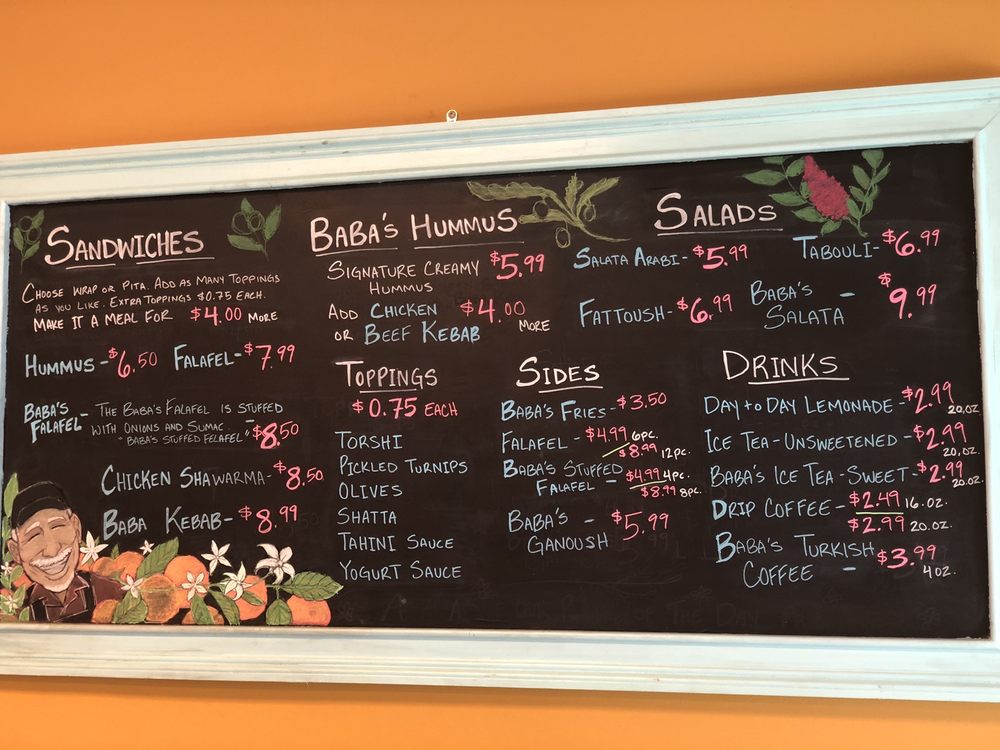 SANDWICHES
CHOOSE WRAP OR PITA. ADD AS MANY TOPPINGS
AS YOU LIKE. EXTRA TOPPINGS $0.75 EACH.
MAKE IT A MEAL FOR $4.00 MORE
HUMMUS - $6.50 FALAFEL - $7.99
BABA'S FALAFEL - THE BABA'S FALAFEL IS STUFFED
WITH ONIONS AND SUMAC.
"BABA'S STUFFED FELAFEL" $8.50
CHICKEN SHAWARMA - $8.50
BABA KEBAB - $8.99
BABA'S HUMMUS
SIGNATURE CREAMY $5.99
HUMMUS
ADD CHICKEN $4.00
OR BEEF KEBAB MORE
TOPPINGS
$0.75 EACH
TORSHI
PICKLED TURNIPS
OLIVES
SHATTA
TAHINI SAUCE
YOGURT SAUCE
SALADS
SALATA ARABI - $5.99 TABOULI - $6.99
FATTOUSH - $6.99 BABA'S - $9.99
SALATA
SIDES
BABA'S FRIES - $3.50
FALAFEL - $4.99 6PC.
$8.99 12PC.
BABA'S STUFFED
FALAFEL - $4.99 4PC.
$8.99 8PC.
BABA'S - $5.99
GANOUSH
DRINKS
DAY to DAY LEMONADE - $2.99 20.OZ
ICE TEA - UNSWEETENED - $2.99 20.OZ.
BABA'S ICE TEA - SWEET - $2.99 20.OZ.
DRIP COFFEE - $2.49 16.OZ.
$2.99 20.OZ.
BABA'S TURKISH $3.99
COFFEE - 4OZ.